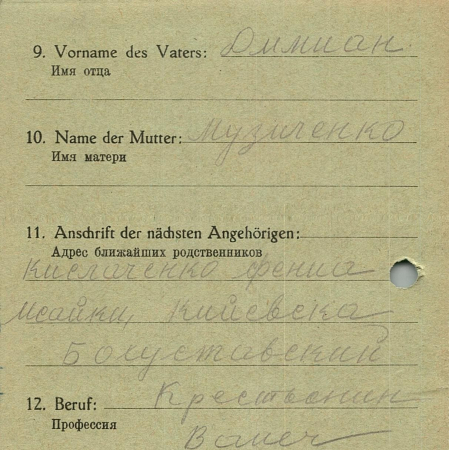 9. Vorname des Vaters: Димиан
Имя отца
10. Name der Mutter: Музиченко
Имя матери
11. Anschrift der nächsten Angehörigen:
Адрес ближайших родственников
Кислаченко Фениа
Исайки, Кийевска
Богуставский
12. Beruf: Крестьонин
Профессия